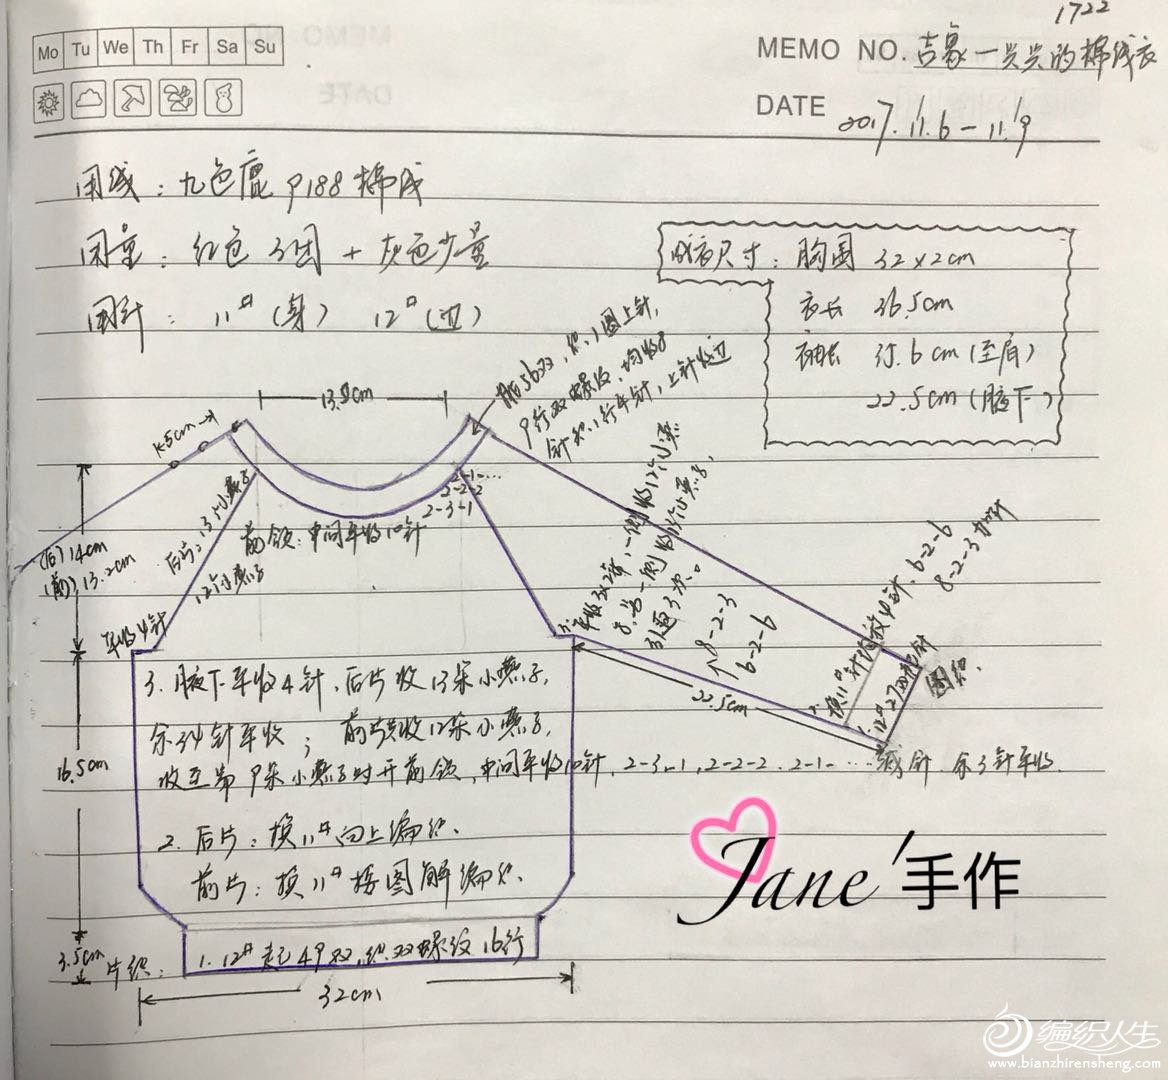 1722
Mo Tu We Th Fr Sa Su
MEMO NO. 吉象一兴兴的棉线衣
DATE 2017.11.6-11.9
用线：九色鹿9188棉线
用量：红色3团+灰色少量
用针：11#(身) 12#(边)
成衣尺寸：胸围 32×2cm
衣长 36.5cm
袖长 35.6cm(至肩)
22.5cm(腋下)
13.8cm
1.5cm
挑56双，织1圈上针，
9行双螺纹，均收8
针织1行平针，上针收边
2-1-...
2-2-2
2-3-1
前领：中间平收10针
后片：13朵小燕子
12朵小燕子
(后)14cm
(前)13.2cm
平收4针
3. 平收4针，一侧收12朵小燕
引退3次。
8-2-3
6-2-6
22.5cm
2. 换11#针均放4针，6-2-6
8-2-3加针
圈织.
3. 腋下平收4针，后片收13朵小燕子，
余34针平收；前片共收12朵小燕子，
收至第9朵小燕子时开前领，中间平收10针，2-3-1，2-2-2，2-1-...减针，余3针平收.
2. 后片：换11#向上编织.
前片：换11#按图解编织.
16.5cm
3.5cm
片织：
1. 12#起49双，织双螺纹16行
32cm
Jane'手作
编织人生
www.bianzhirensheng.com